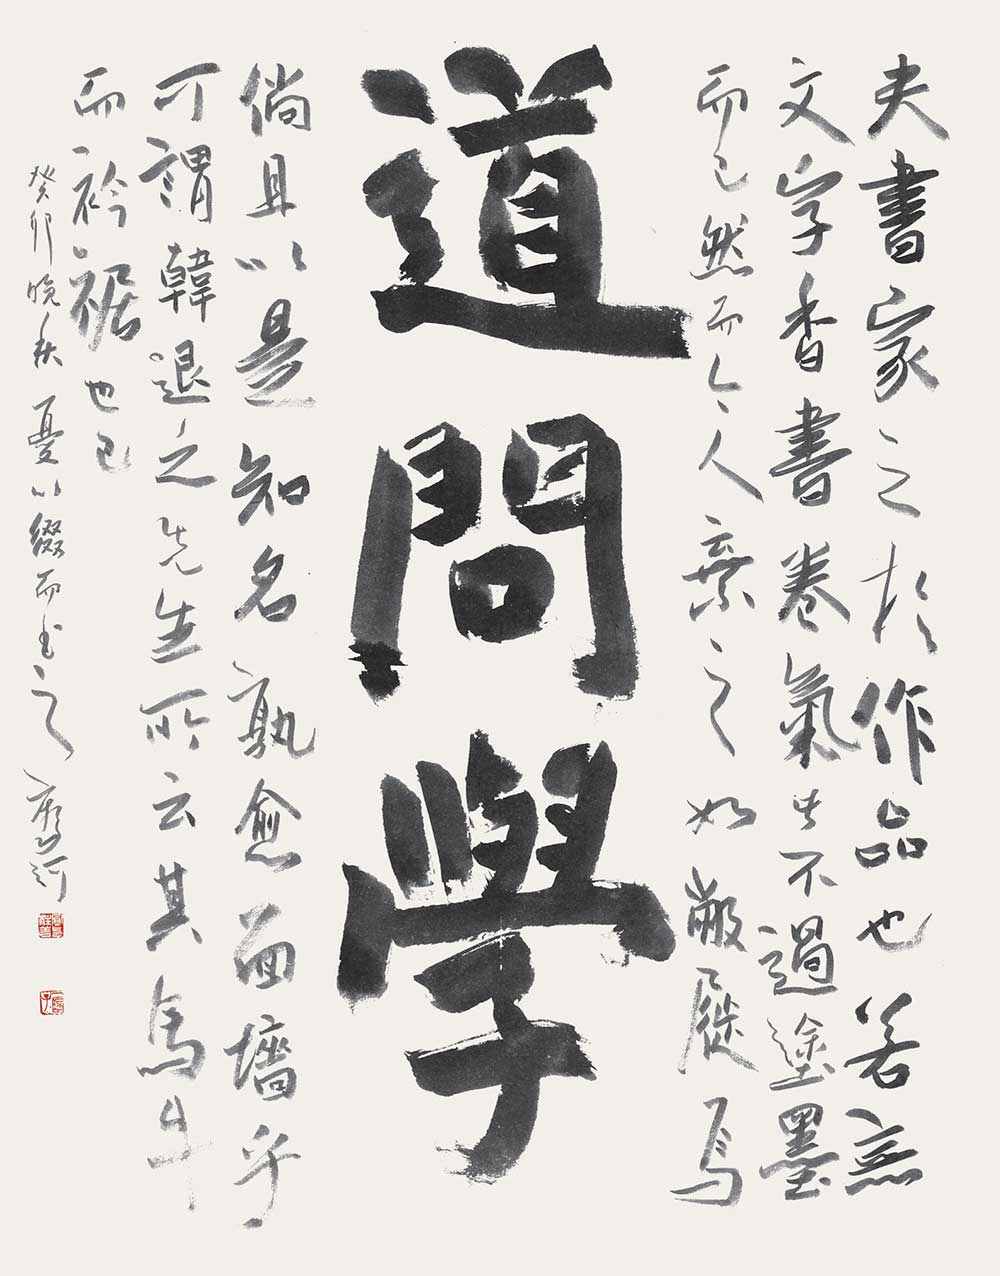 夫書家之於作品也若無
文字香書卷氣者不過塗墨
而已然而今人棄之如敝屣焉
道問學
倘且以是知名孰愈面墻乎
可謂韓退之先生所云其馬牛
而衿裾也已
癸卯晚秋 以綴而書之